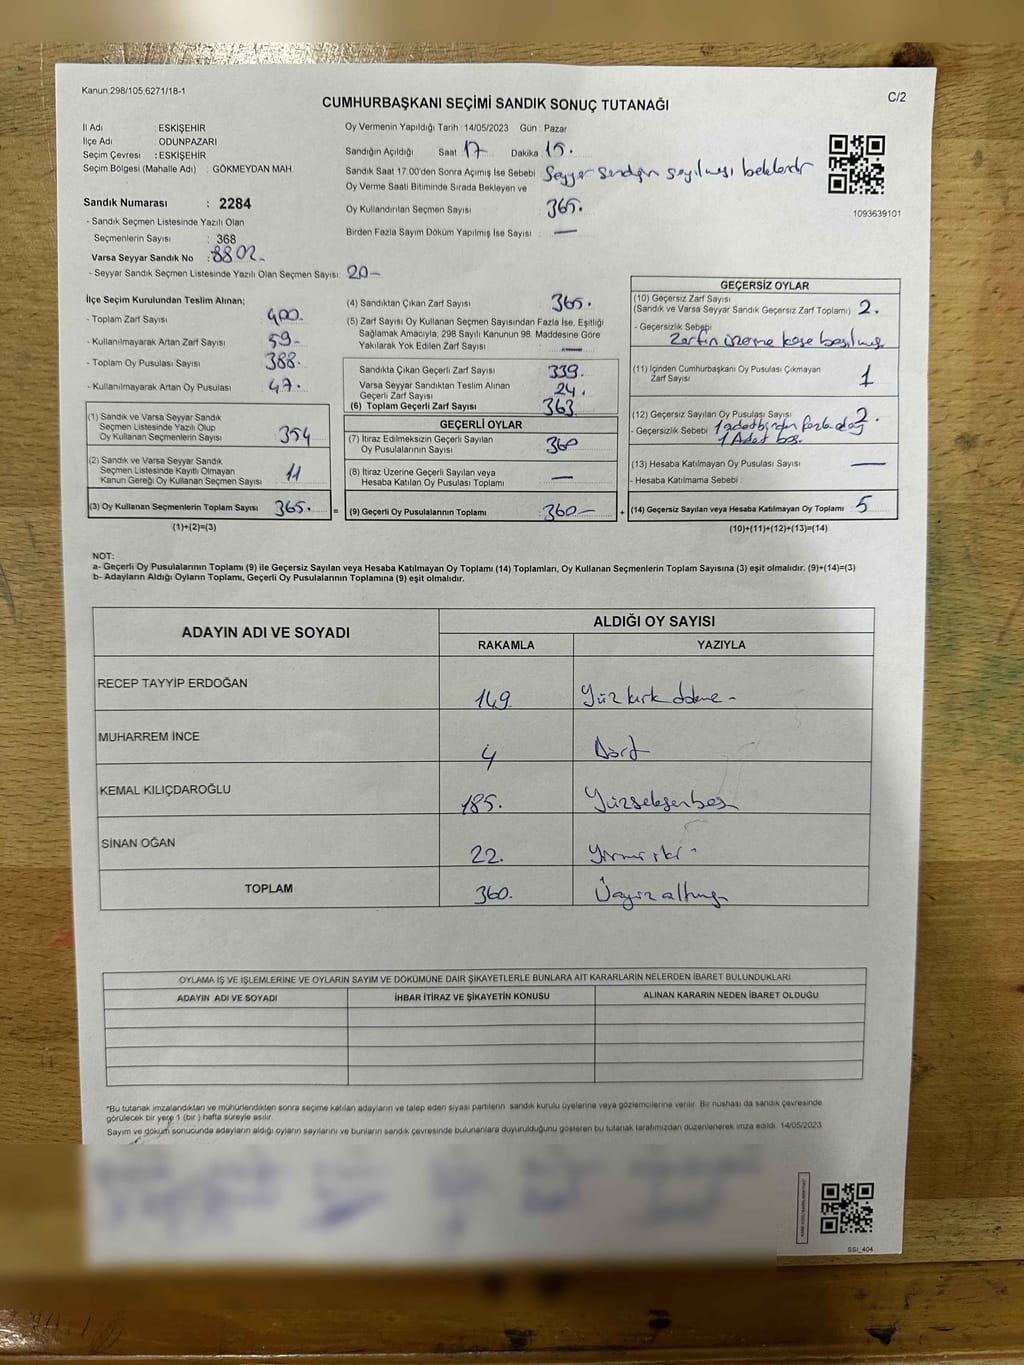 Kanun.298/105,6271/18-1
C/2
CUMHURBAŞKANI SEÇİMİ SANDIK SONUÇ TUTANAĞI
İl Adı : ESKİŞEHİR
İlçe Adı : ODUNPAZARI
Seçim Çevresi : ESKİŞEHİR
Seçim Bölgesi (Mahalle Adı) : GÖKMEYDAN MAH.
Sandık Numarası : 2284
- Sandık Seçmen Listesinde Yazılı Olan
Seçmenlerin Sayısı : 368
Varsa Seyyar Sandık No : 8802-
- Seyyar Sandık Seçmen Listesinde Yazılı Olan Seçmen Sayısı: 20-
Oy Vermenin Yapıldığı Tarih :14/05/2023 Gün : Pazar
Sandığın Açıldığı Saat 17 Dakika 15.
Sandık Saat 17.00'den Sonra Açımış İse Sebebi Seyyar sandığın sayılması beklendi
Oy Verme Saati Bitiminde Sırada Bekleyen ve
Oy Kullandırılan Seçmen Sayısı 365.
Birden Fazla Sayım Döküm Yapılmış İse Sayısı : —
1093639101
İlçe Seçim Kurulundan Teslim Alınan;
- Toplam Zarf Sayısı 400.
- Kullanılmayarak Artan Zarf Sayısı 59-
- Toplam Oy Pusulası Sayısı 388.
- Kullanılmayarak Artan Oy Pusulası 47.
(1) Sandık ve Varsa Seyyar Sandık
Seçmen Listesinde Yazılı Olup
Oy Kullanan Seçmenlerin Sayısı 354
(2) Sandık ve Varsa Seyyar Sandık
Seçmen Listesinde Kayıtlı Olmayan
Kanun Gereği Oy Kullanan Seçmen Sayısı 11
(3) Oy Kullanan Seçmenlerin Toplam Sayısı 365.
(1)+(2)=(3)
(4) Sandıktan Çıkan Zarf Sayısı 365.
(5) Zarf Sayısı Oy Kullanan Seçmen Sayısından Fazla İse, Eşitliği
Sağlamak Amacıyla, 298 Sayılı Kanunun 98. Maddesine Göre
Yakılarak Yok Edilen Zarf Sayısı —
Sandıkta Çıkan Geçerli Zarf Sayısı 339.
Varsa Seyyar Sandıktan Teslim Alınan
Geçerli Zarf Sayısı 24.
(6) Toplam Geçerli Zarf Sayısı 363
GEÇERLİ OYLAR
(7) İtiraz Edilmeksizin Geçerli Sayılan
Oy Pusulalarının Sayısı 360
(8) İtiraz Üzerine Geçerli Sayılan veya
Hesaba Katılan Oy Pusulası Toplamı —
= (9) Geçerli Oy Pusulalarının Toplamı 360-
GEÇERSİZ OYLAR
(10) Geçersiz Zarf Sayısı
(Sandık ve Varsa Seyyar Sandık Geçersiz Zarf Toplamı) 2.
- Geçersizlik Sebebi
Zarfın üzerine kaşe basılmış
(11) İçinden Cumhurbaşkanı Oy Pusulası Çıkmayan
Zarf Sayısı 1
(12) Geçersiz Sayılan Oy Pusulası Sayısı 2.
- Geçersizlik Sebebi : 1 adet birden fazla
1 Adet boş.
(13) Hesaba Katılmayan Oy Pusulası Sayısı —
- Hesaba Katılmama Sebebi :
+ (14) Geçersiz Sayılan veya Hesaba Katılmayan Oy Toplamı 5
(10)+(11)+(12)+(13)=(14)
NOT:
a- Geçerli Oy Pusulalarının Toplamı (9) ile Geçersiz Sayılan veya Hesaba Katılmayan Oy Toplamı (14) Toplamları, Oy Kullanan Seçmenlerin Toplam Sayısına (3) eşit olmalıdır. (9)+(14)=(3)
b- Adayların Aldığı Oyların Toplamı, Geçerli Oy Pusulalarının Toplamına (9) eşit olmalıdır.
ADAYIN ADI VE SOYADI ALDIĞI OY SAYISI
RAKAMLA YAZIYLA
RECEP TAYYİP ERDOĞAN 149. Yüzkırkdokuz -
MUHARREM İNCE 4 Dört
KEMAL KILIÇDAROĞLU 185. Yüzseksenbeş
SİNAN OĞAN 22. Yirmi iki -
TOPLAM 360. Üçyüzaltmış
OYLAMA İŞ VE İŞLEMLERİNE VE OYLARIN SAYIM VE DÖKÜMÜNE DAİR ŞİKAYETLERLE BUNLARA AİT KARARLARIN NELERDEN İBARET BULUNDUKLARI
ADAYIN ADI VE SOYADI İHBAR İTİRAZ VE ŞİKAYETİN KONUSU ALINAN KARARIN NEDEN İBARET OLDUĞU
*Bu tutanak imzalandıktan ve mühürlendikten sonra seçime katılan adayların ve talep eden siyasi partilerin sandık kurulu üyelerine veya gözlemcilerine verilir. Bir nüshası da sandık çevresinde
görülecek bir yere 1 (bir ) hafta süreyle asılır.
Sayım ve döküm sonucunda adayların aldığı oyların sayılarını ve bunların sandık çevresinde bulunanlara duyurulduğunu gösteren bu tutanak tarafımızdan düzenlenerek imza edildi. 14/05/2023
SSI_404